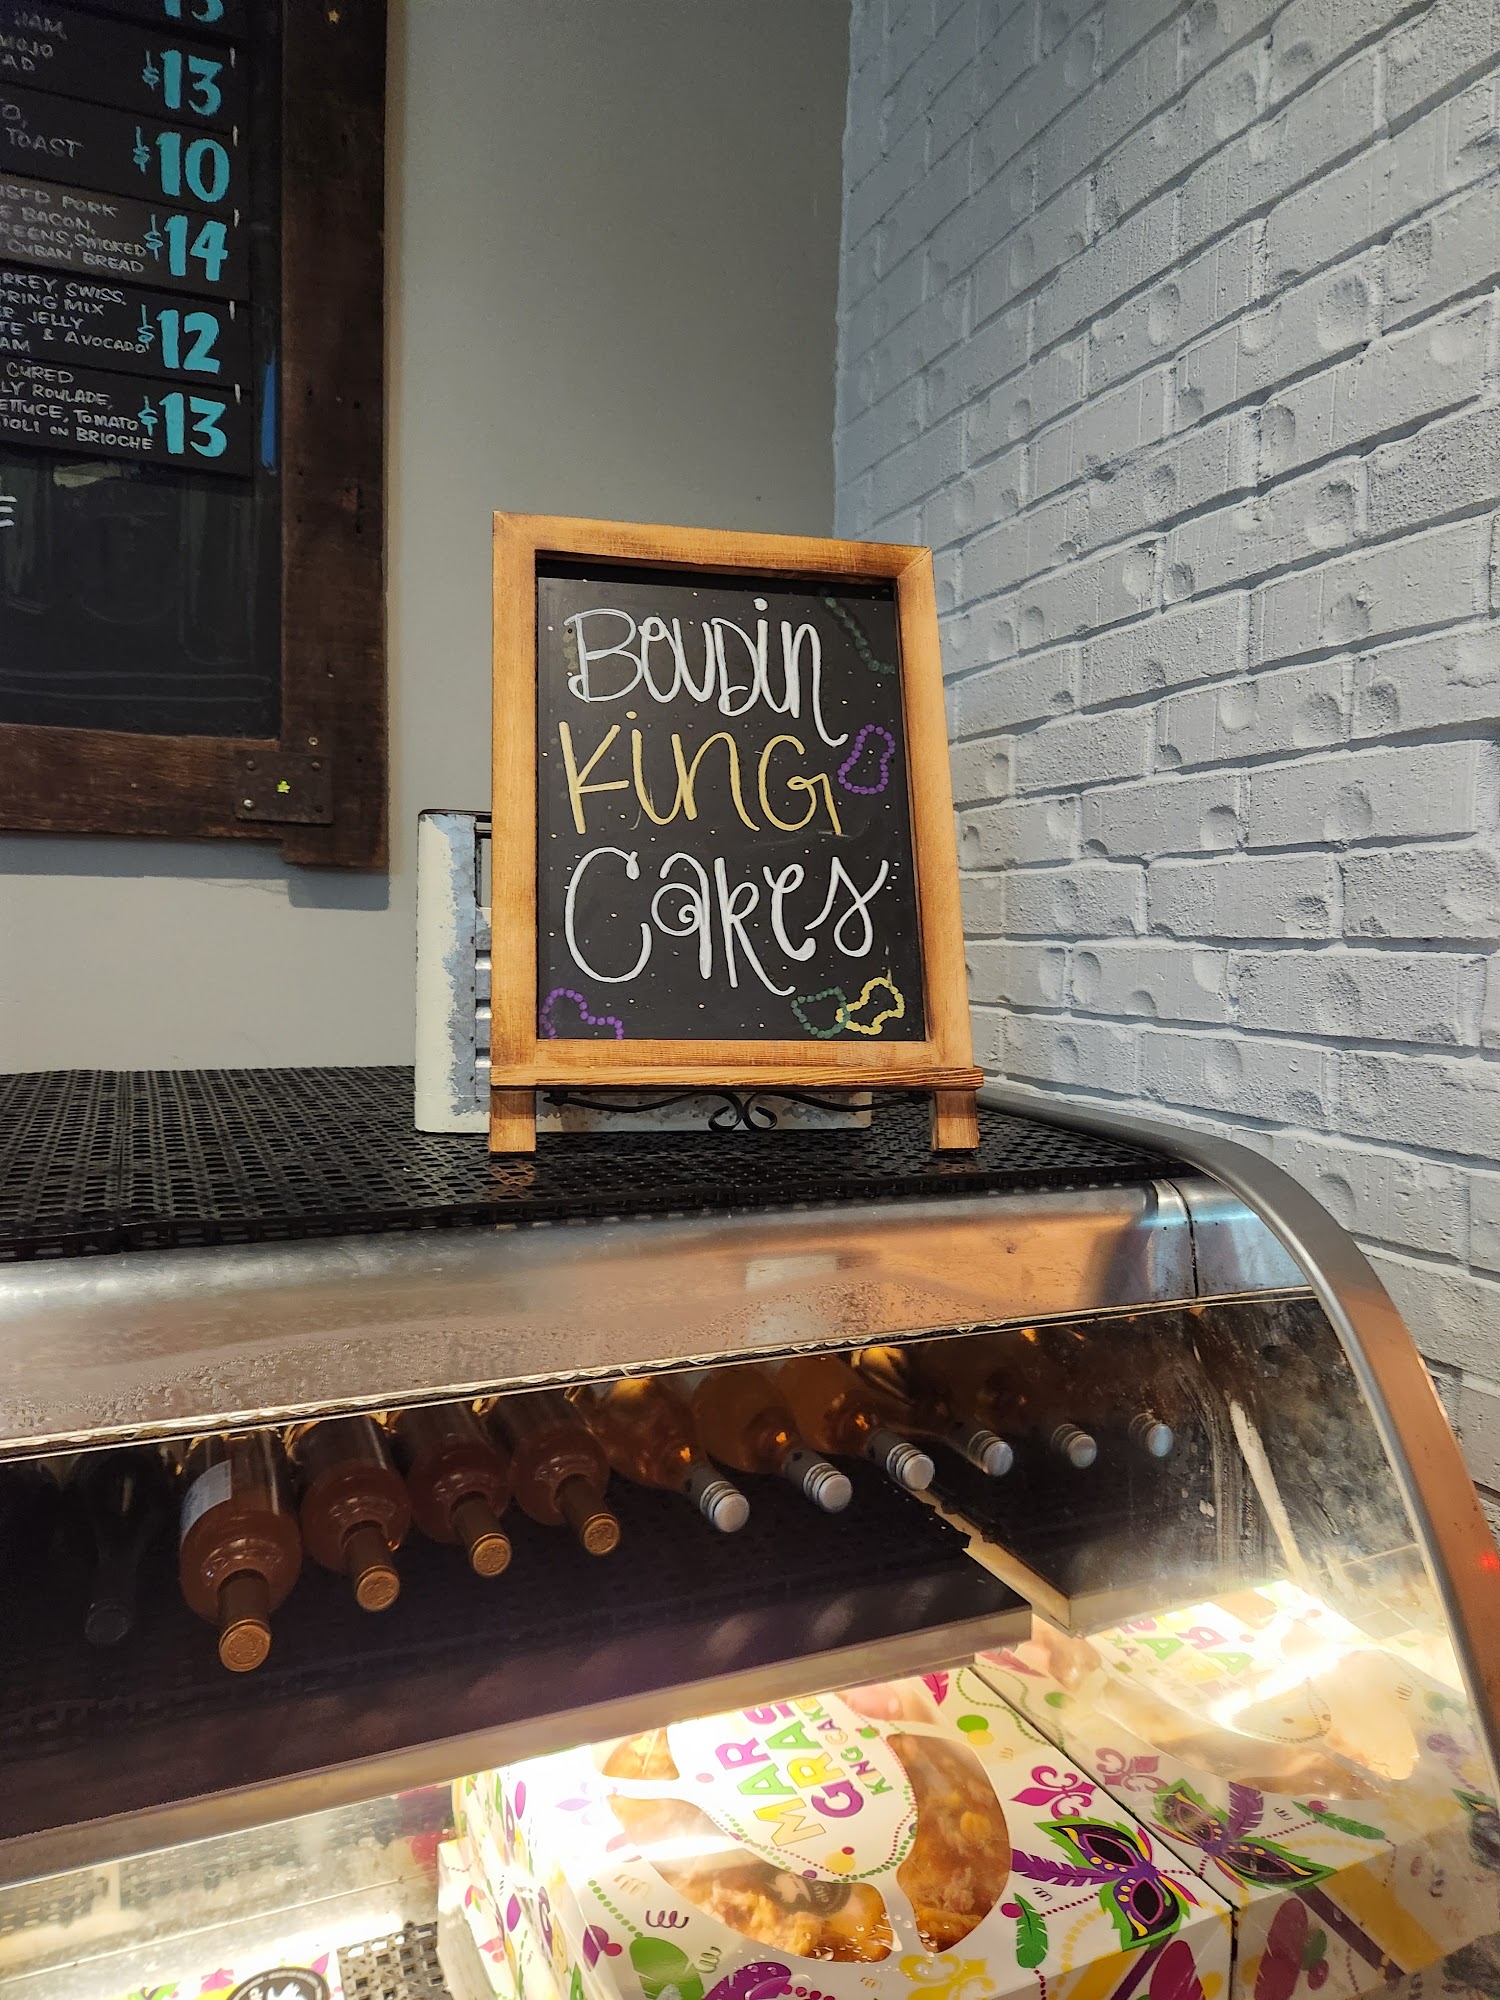 HAM,
MOJO
$13
TOAST
$10
PORK
BACON,
GREENS, SMOKED
CUBAN BREAD
$14
SWISS,
SPRING MIX
JELLY
& AVOCADO
$12
CURED
ROULADE,
LETTUCE, TOMATO
ON BRIOCHE
$13
BOUDIN
KING
CAKES
MARDI
GRAS
KING CAKE